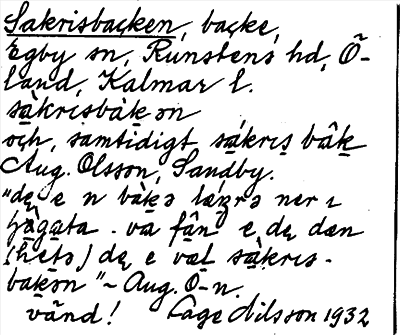 Sakrisbacken, backe,
Egby sn, Runstens hd, Ö-
land, Kalmar l.
sàkrisbàkən
och, samtidigt, sákris bâk
Aug. Olsson, Sandby.
"dę e n bàkə længrə ner ı
hàgata - va fân e də dæn
(hets) dę e væl sàkrıs -
bakən" ~ Aug. O-n.
vänd! Lage Nilsson 1932